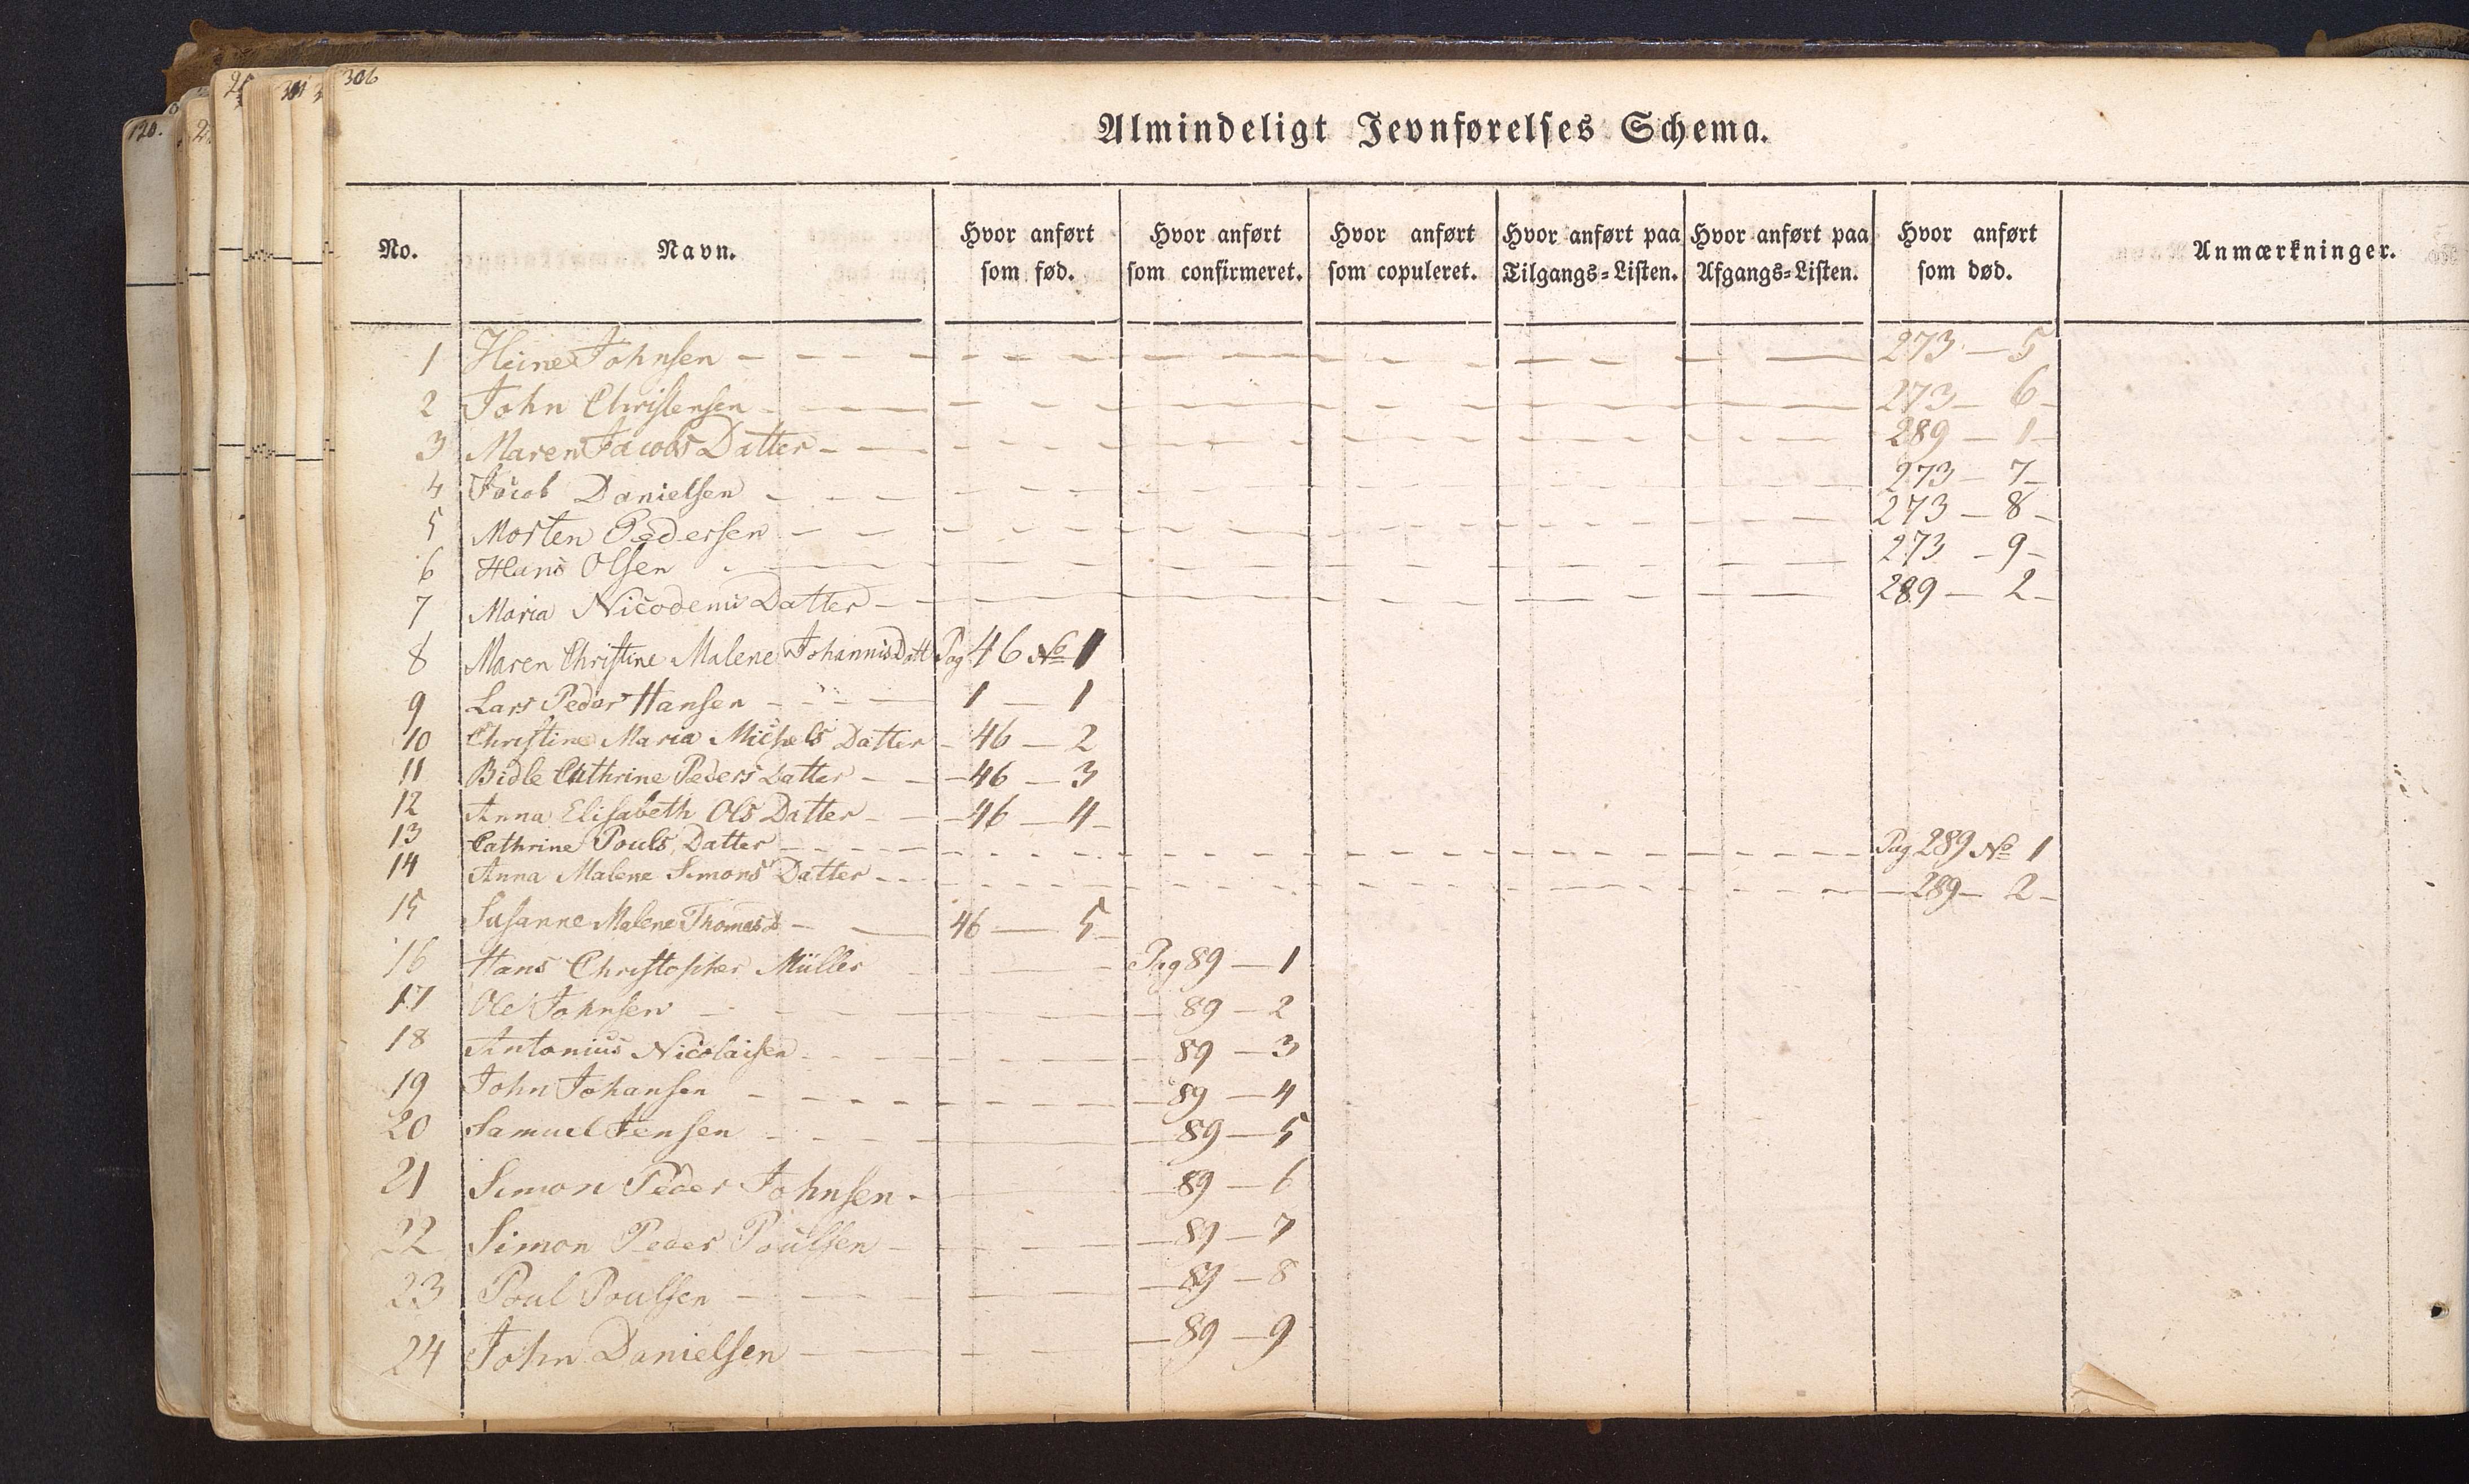 306
120.
Almindeligt Jevnførelses Schema.
No. Navn. Hvor anført som fød. Hvor anført som confirmeret. Hvor anført som copuleret. Hvor anført paa Tilgangs=Listen. Hvor anført paa Afgangs=Listen. Hvor anført som død. Anmærkninger.
1 Heine Johnsen - - - 273 — 5
2 John Christensen - - - 273 — 6 -
3 Maren Jacobs Datter - - - 289 — 1 -
4 Jacob Danielsen - - - 273 — 7 -
5 Morten Pedersen - - - 273 — 8 -
6 Hans Olsen - - - 273 — 9 -
7 Maria Nicodemi Datter - - - 289 — 2 -
8 Maren Christine Malene Johannis Datt Pag 46 No 1
9 Lars Peder Hansen - - - 1 — 1
10 Christine Maria Michels Datter - 46 — 2
11 Bidle Cathrine Peders Datter - - 46 — 3
12 Anna Elisabeth Ols Datter - - 46 — 4 -
13 Cathrine Pouls Datter - - - Pag 289 No 1
14 Anna Malene Simons Datter - - - 289 — 2 -
15 Susanne Malene Thomas D - — 46 — 5 -
16 Hans Christopher Müller - - - Pag 89 — 1
17 Ole Johnsen - - - 89 — 2
18 Antonius Nicolaisen - - - 89 — 3
19 John Johansen - - - 89 — 4
20 Samuel Jensen - - - 89 — 5
21 Simon Peder Johnsen - - - 89 — 6
22 Simon Peder Poulsen - - - 89 — 7
23 Poul Poulsen - - - 89 — 8
24 John Danielsen - - - 89 — 9